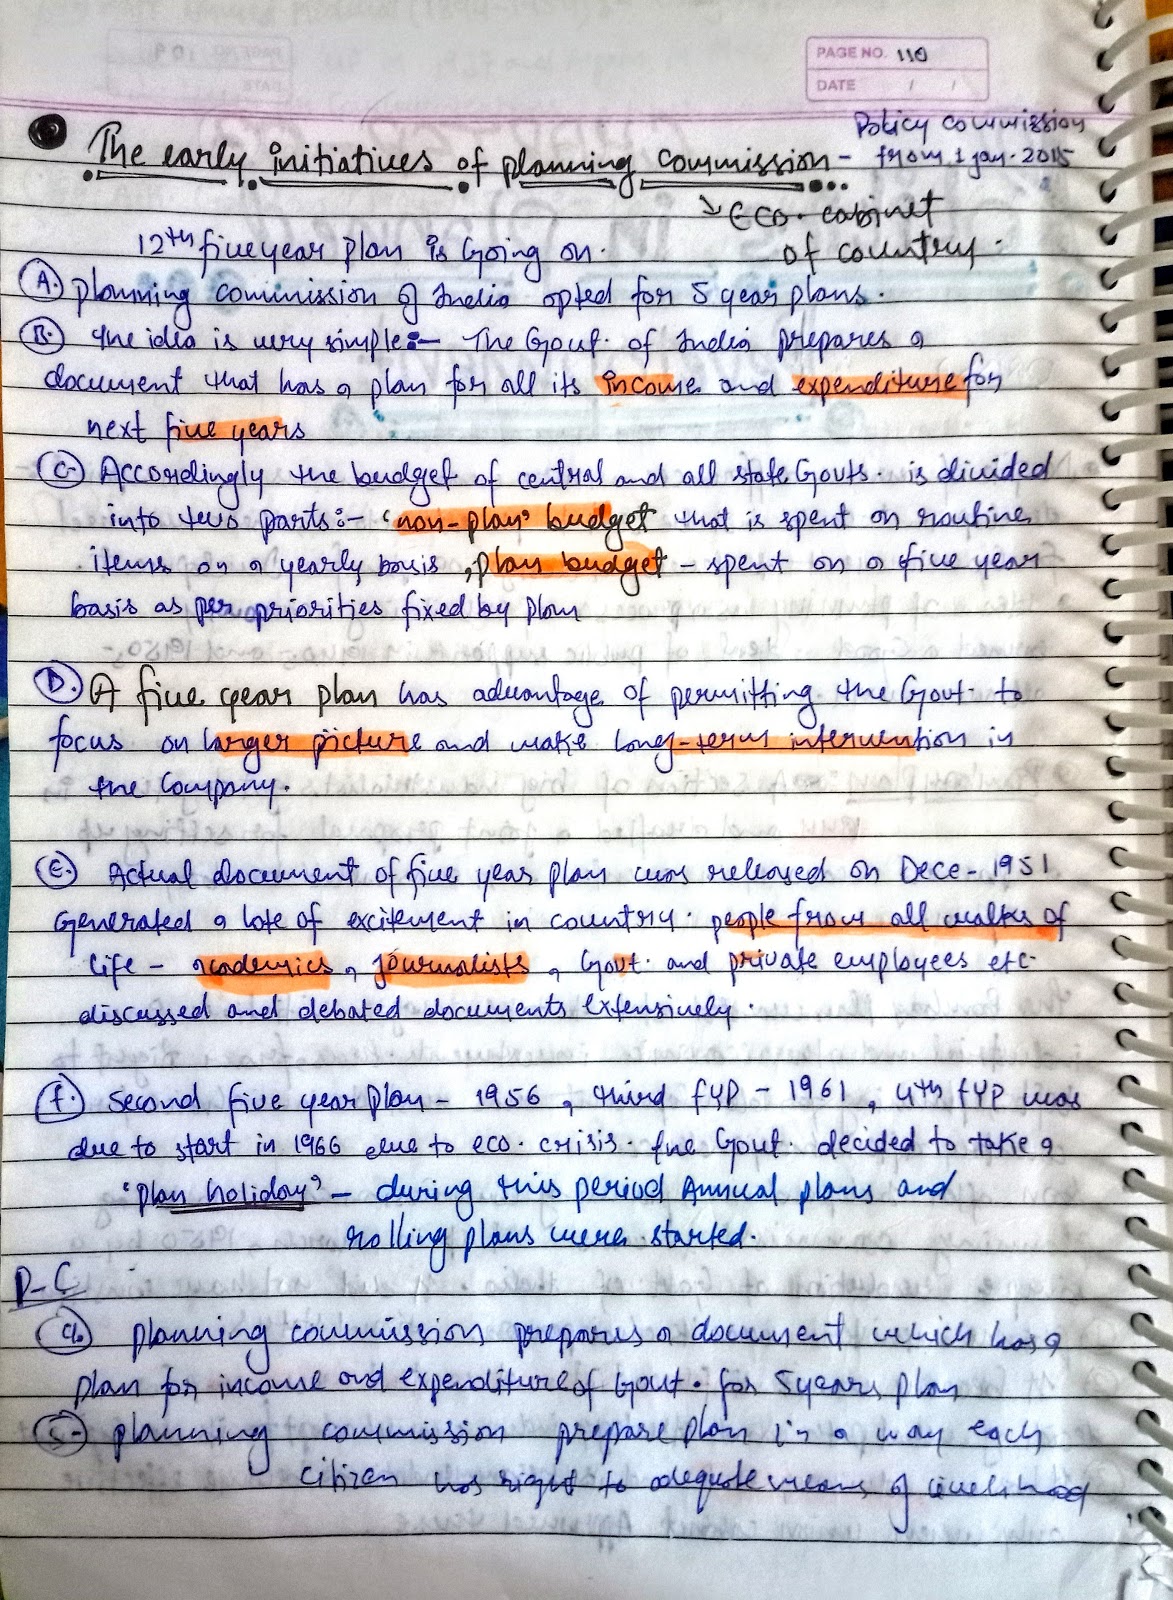 PAGE NO. 110
DATE / /
Policy commission
The early initiatives of planning commission - from 1 jan. 2015
↘ Eco. cabinet
12th five year plan is Going on. of country.
A. planning commission of India opted for 5 year plans.
B. the idea is very simple :- The Gout. of India prepares a
document that has a plan for all its income and expenditure for
next five years
C. Accordingly the budget of central and all state Gouts. is divided
into two parts:- 'non-plan' budget that is spent on routine
items on a yearly basis, plan budget - spent on a five year
basis as per priorities fixed by plan
D. A five year plan has advantage of permitting the Gout. to
focus on larger picture and make long-term intervention in
the Company.
E. Actual document of five year plan was released on Dece - 1951
Generated a lote of excitement in country. people from all walks of
life - academics, journalists, Gout. and private employees etc.
discussed and debated documents extensively.
f. second five year plan - 1956, third fyp - 1961, 4th fyp was
due to start in 1966 due to eco. crisis. the Gout. decided to take a
'plan holiday' - during this period Annual plans and
rolling plans were started.
P-C
a. planning commission prepares a document which has a
plan for income and expenditure of Gout. for 5 years plan
planning commission prepare plan in a way each
citizen has right to adequate means of livelihood